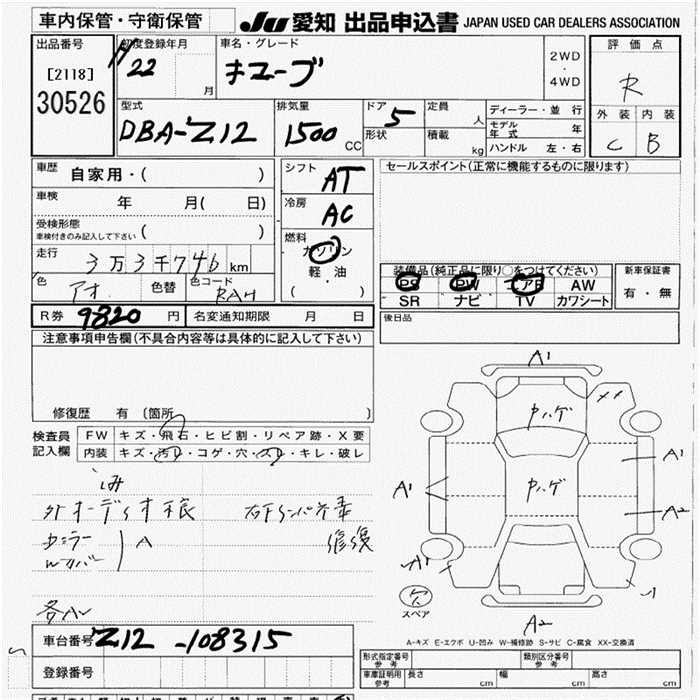 車内保管・守衛保管
JU 愛知 出品申込書 JAPAN USED CAR DEALERS ASSOCIATION
出品番号
[2118]
30526
初度登録年月
H22 月
車名・グレード
キューブ
2WD
・
4WD
評価点
R
外装 内装
C B
型式
DBA-Z12
排気量
1500 CC
ドア
5
形状
定員
人
積載
kg
ディーラー・並行
モデル年式 年
ハンドル 左・右
車歴
自家用・( )
車検
年 月( 日)
受検形態
車検付きのみ記入して下さい ( )
走行
3万3千746 km
色
アオ
色替
色コード
RAH
シフト
AT
冷房
AC
燃料
ガソリン
軽・油
( )
セールスポイント(正常に機能するものに限ります)
装備品(純正品に限り○をつけてください)
PS PW エアB AW
SR ナビ TV カワシート
新車保証書
有・無
R券 9820 円
名変通知期限 月 日
後日品
注意事項申告欄(不具合内容等は具体的に記入して下さい)
修復歴 有 〔箇所 〕
検査員
記入欄
FW キズ・飛石・ヒビ割・リペア跡・X要
内装 キズ・汚レ・コゲ・穴・スレ・キレ・破レ
外オーディオ
修復
A
A1
中ハゲ
XX
A1
A1
中ハゲ
A2
A1
穴
スペア
A2
A-キズ E-エクボ U-凹み W-補修跡 S-サビ C-腐食 XX-交換済
車台番号 Z12-108315
登録番号
形式指定番号
参考
類別区分番号
参考
車庫証明用
参考
長さ cm 幅 cm 高さ cm